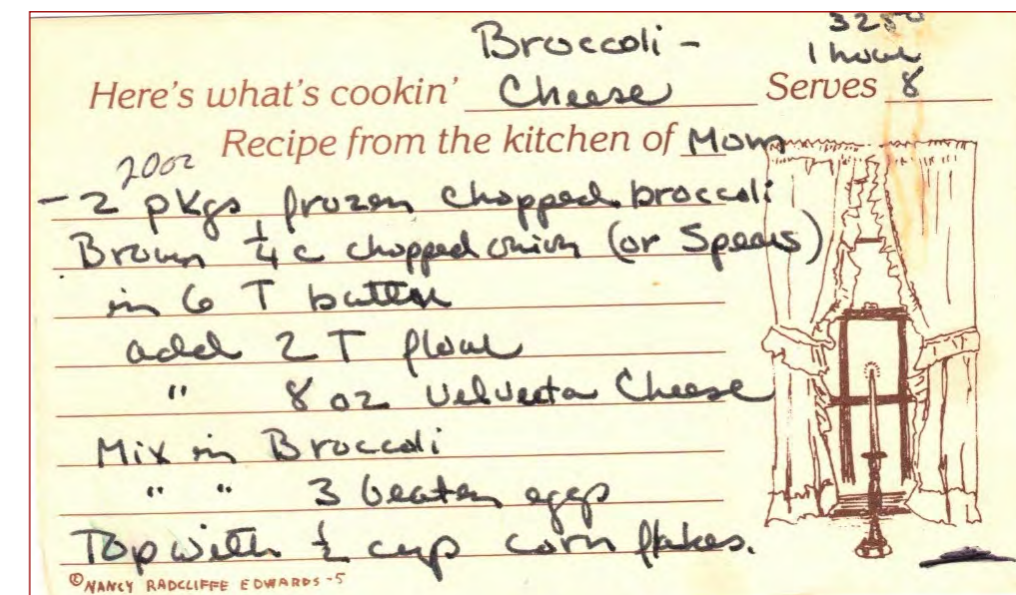 Broccoli - 325°
1 hour
Here's what's cookin' Cheese Serves 8
Recipe from the kitchen of Mom
20oz
- 2 pkgs frozen chopped broccoli
Brown 1/4 c chopped onion (or Spears)
in 6 T butter
add 2 T flour
" 8 oz Velveeta Cheese
Mix in Broccoli
" " 3 beaten eggs
Top with 1/2 cup corn flakes.
© NANCY RADCLIFFE EDWARDS -5